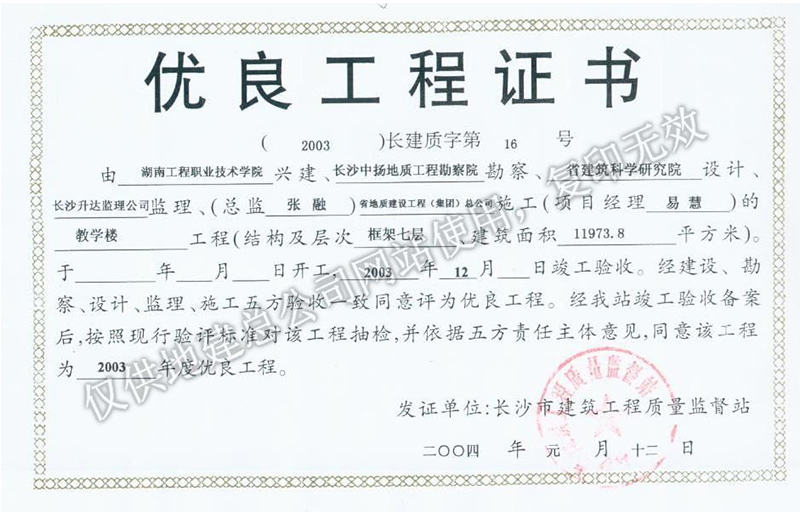 优良工程证书
( 2003 )长建质字第 16 号
由 湖南工程职业技术学院 兴建、长沙中扬地质工程勘察院 勘察、省建筑科学研究院 设计、
长沙升达监理公司 监理、(总监 张融 )省地质建设工程(集团)总公司施工(项目经理 易慧 )的
教学楼 工程(结构及层次 框架七层 、建筑面积 11973.8 平方米)。
于 年 月 日开工, 2003 年 12 月 日竣工验收。经建设、勘
察、设计、监理、施工五方验收一致同意评为优良工程。经我站竣工验收备案
后,按照现行验评标准对该工程抽检,并依据五方责任主体意见,同意该工程
为 2003 年度优良工程。
发证单位:长沙市建筑工程质量监督站
二〇〇四 年 元 月 十二 日
仅供地建总公司网站使用,复印无效